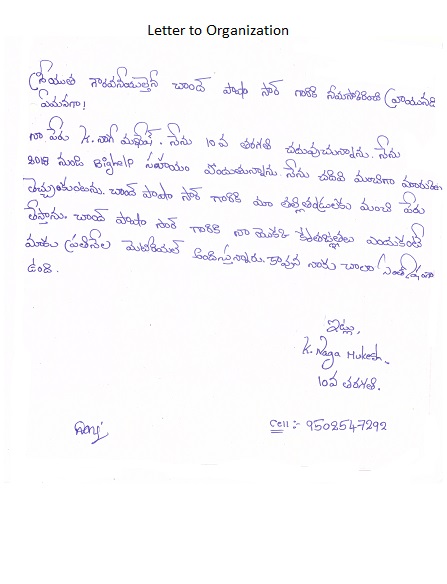 Letter to Organization
శ్రీయుత గౌరవనీయులైన చాంద్ పాషా సార్ గారికి నమస్కరించి వ్రాయునది
ఏమనగా!
నా పేరు K. నాగ ముఖేష్. నేను 10వ తరగతి చదువుచున్నాను. నేను
2018 నుండి Bighelp సహాయం పొందుతున్నాను. నేను చదివి మంచిగా మార్కులు
తెచ్చుకుంటాను. చాంద్ పాషా సార్ గారికి మా తల్లితండ్రులకు మంచి పేరు
తెస్తాను. చాంద్ పాషా సార్ గారికి నా యొక్క కృతజ్ఞతలు ఎందుకంటే
మాకు ప్రతినెల మెటీరియల్ అందిస్తున్నారు. కావున నాకు చాలా సంతోషంగా
ఉంది.
ఇట్లు,
K. Naga Mukesh.
10వ తరగతి.
Cell :- 9502547292